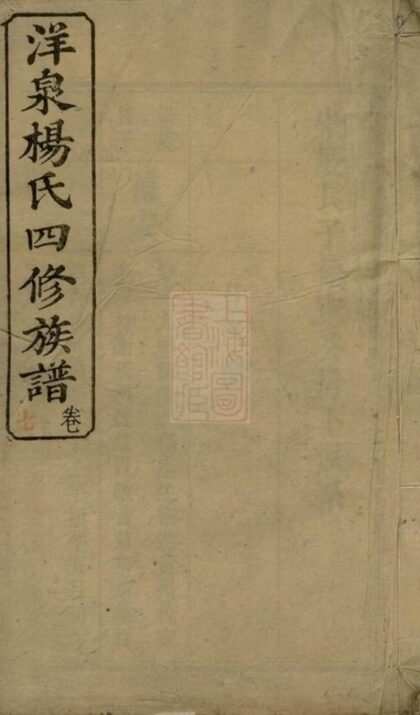 洋泉楊氏四修族譜
卷七
上海圖書館藏